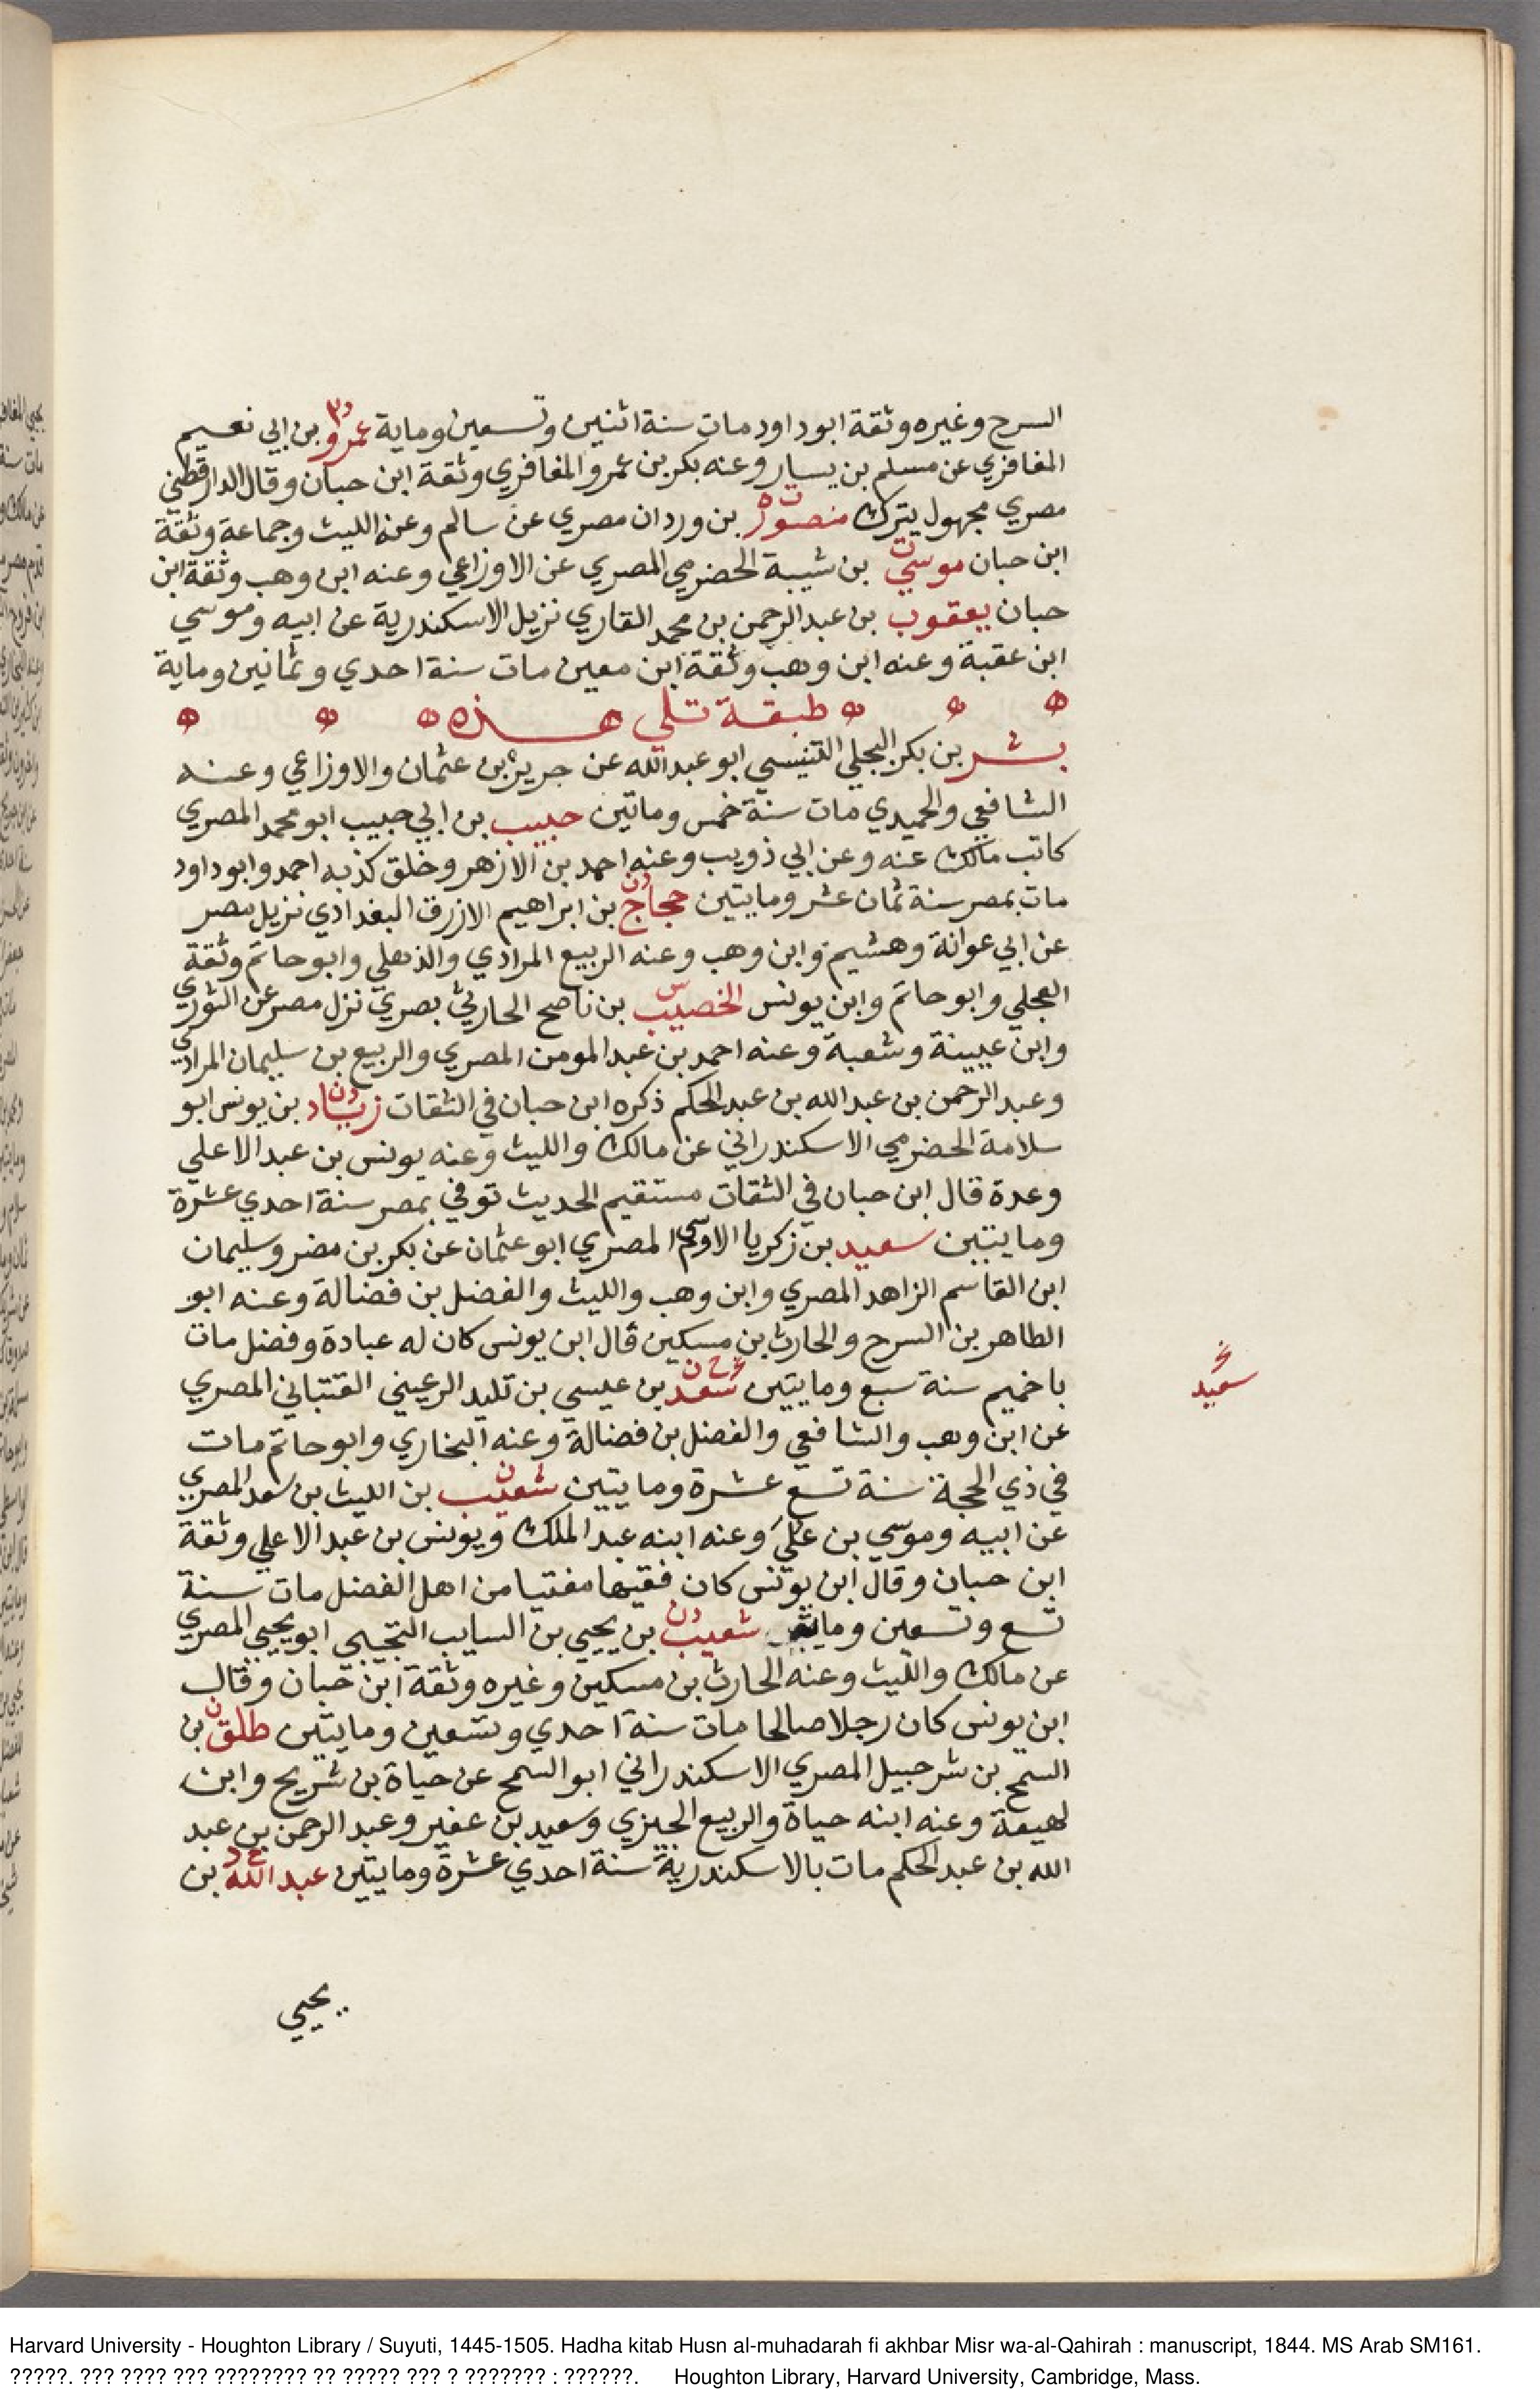 السرح وغيره وثقة ابو داود مات سنة اثنين وتسعين وماية عمرو بن ابي نعيم
المغافزي عن مسلم بن يسار وعنه بكر بن عمرو المغافزي وثقة ابن حبان وقال الدارقطني
مصري مجهول يترك منصور بن وردان مصري عن سالم وعنه الليث وجماعة وثقة
ابن حبان موسي بن شيبة الحضرمي المصري عن الاوزاعي وعنه ابن وهب وثقة ابن
حبان يعقوب بن عبد الرحمن بن محمد القاري نزيل الاسكندرية عن ابيه وموسي
ابن عقبة وعنه ابن وهب وثقة ابن معين مات سنة احدي وثمانين وماية
طبقة تلي هذه
بشر بن بكر البجلي التنيسي ابو عبد الله عن جرير بن عثمان والاوزاعي وعنه
الشافعي والحميدي مات سنة خمس وماتين حبيب بن ابي حبيب ابو محمد المصري
كاتب مالك عنه وعن ابي ذويب وعنه احمد بن الازهر وخلق كذبه احمد وابو داود
مات بمصر سنة ثمان عشر ومايتين حجاج بن ابراهيم الازرق البغدادي نزيل مصر
عن ابي عوانة وهشيم وابن وهب وعنه الربيع المرادي والذهلي وابو حاتم وثقة
العجلي وابو حاتم وابن يونس الخصيب بن ناصح الحارثي بصري نزل مصر عن الثوري
وابن عيينة وشعبة وعنه احمد بن عبد المومن المصري والربيع بن سليمان المرادي
وعبد الرحمن بن عبد الله بن عبد الحكم ذكره ابن حبان في الثقات زياد بن يونس ابو
سلامة الحضرمي الاسكندراني عن مالك والليث وعنه يونس بن عبد الاعلي
وعدة قال ابن حبان في الثقات مستقيم الحديث توفي بمصر سنة احدي عشرة
ومايتين سعيد بن زكريا الاوسي المصري ابو عثمان عن بكر بن مضر وسليمان
ابن القاسم الزاهد المصري وابن وهب والليث والفضل بن فضالة وعنه ابو
الطاهر بن السرح والحارث بن مسكين قال ابن يونس كان له عبادة وفضل مات
باخميم سنة سبع ومايتين سعد بن عيسي بن تليد الرعيني القتباني المصري
سعيد
عن ابن وهب والشافعي والفضل بن فضالة وعنه البخاري وابو حاتم مات
في ذي الحجة سنة تسع عشرة ومايتين شعيب بن الليث بن سعد المصري
عن ابيه وموسي بن علي وعنه ابنه عبد الملك ويونس بن عبد الاعلي وثقة
ابن حبان وقال ابن يونس كان فقيها مفتيا من اهل الفضل مات سنة
تسع وتسعين وماية شعيب بن يحيي بن السايب التجيبي ابو يحيي المصري
عن مالك والليث وعنه الحارث بن مسكين وغيره وثقة ابن حبان وقال
ابن يونس كان رجلا صالحا مات سنة احدي وتسعين ومايتين طلق بن
السمح بن شرحبيل المصري الاسكندراني ابو السمح عن حياة بن شريح وابن
لهيعة وعنه ابنه حياة والربيع الجيزي وسعيد بن عفير وعبد الرحمن بن عبد
الله بن عبد الحكم مات بالاسكندرية سنة احدي عشرة ومايتين عبد الله بن
يحيي
Harvard University - Houghton Library / Suyuti, 1445-1505. Hadha kitab Husn al-muhadarah fi akhbar Misr wa-al-Qahirah : manuscript, 1844. MS Arab SM161.
?????. ??? ???? ??? ???????? ?? ????? ??? ? ??????? : ??????. Houghton Library, Harvard University, Cambridge, Mass.